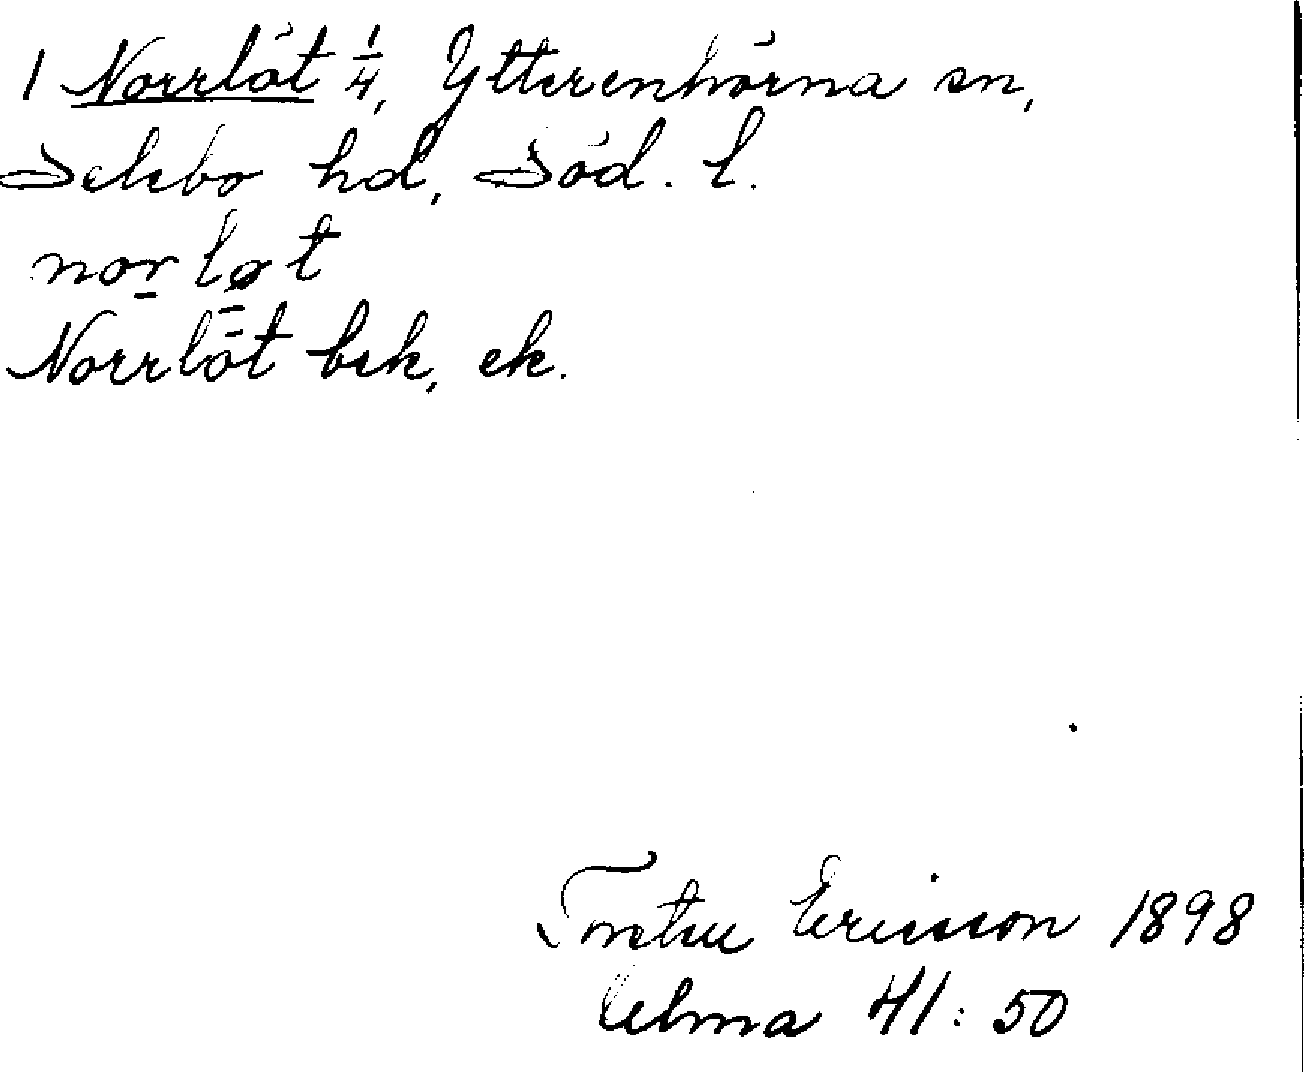 1 Norrlöt 1/4, Ytterenhörna sn,
Selebo hd, Söd. l.
norløt
Norrlöt bek, ek.
Torsten Ericsson 1898
Celma 41:50